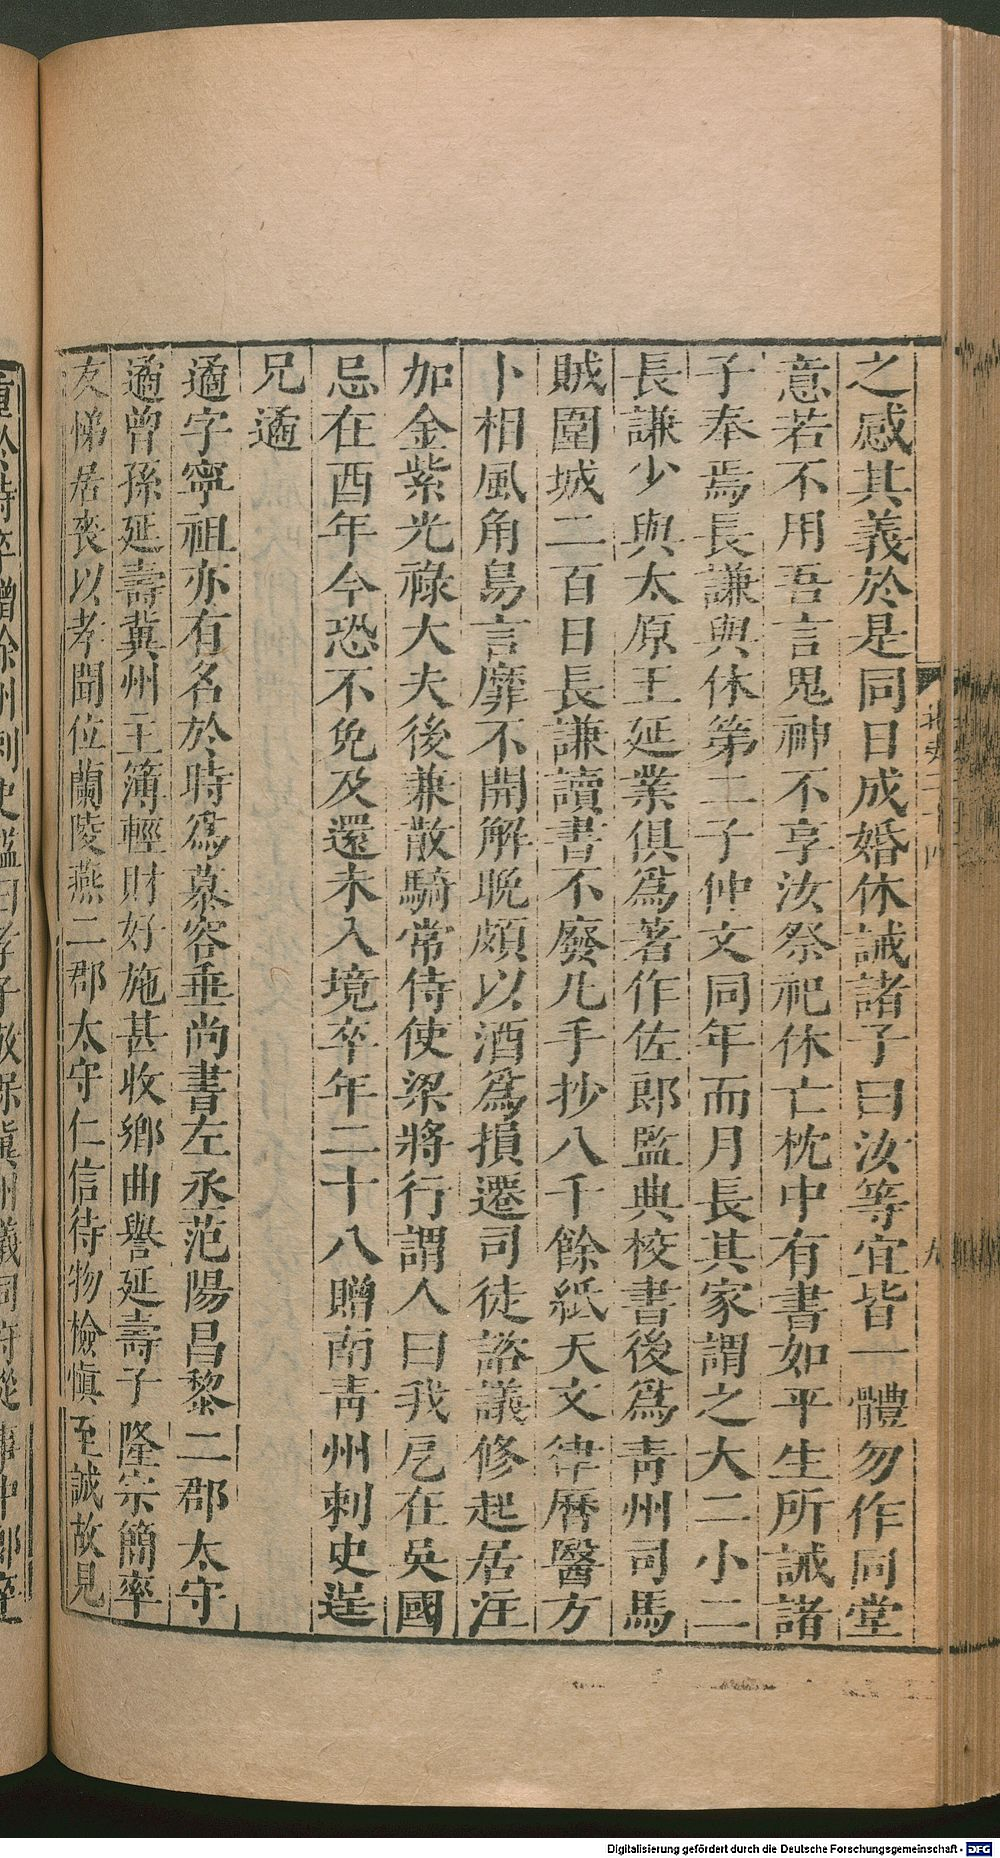 之感其義於是同日成婚休誡諸子曰汝等宜皆一體勿作同堂
意若不用吾言鬼神不享汝祭祀休亡枕中有書如平生所誡諸
子奉焉長謙與休第二子仲文同年而月長其家謂之大二小二
長謙少與太原王延業俱爲著作佐郎監典校書後爲靑州司馬
賊圍城二百日長謙讀書不廢凡手抄八千餘紙天文律曆醫方
卜相風角鳥言靡不開解晩頗以酒爲損遷司徒諮議修起居注
加金紫光祿大夫後兼散騎常侍使梁將行謂人曰我厄在吳國
忌在酉年今恐不免及還未入境卒年二十八贈南靑州刺史逞
兄遹
遹字寧祖亦有名於時爲慕容垂尚書左丞范陽昌黎二郡太守
遹曾孫延壽冀州主簿輕財好施甚收鄉曲譽延壽子隆宗簡率
友悌居喪以孝聞位蘭陵燕二郡太守仁信待物檢愼至誠故見
重於時卒贈徐州刺史諡曰孝子敬保冀州儀同府從事中郎卒
Digitalisierung gefördert durch die Deutsche Forschungsgemeinschaft - DFG